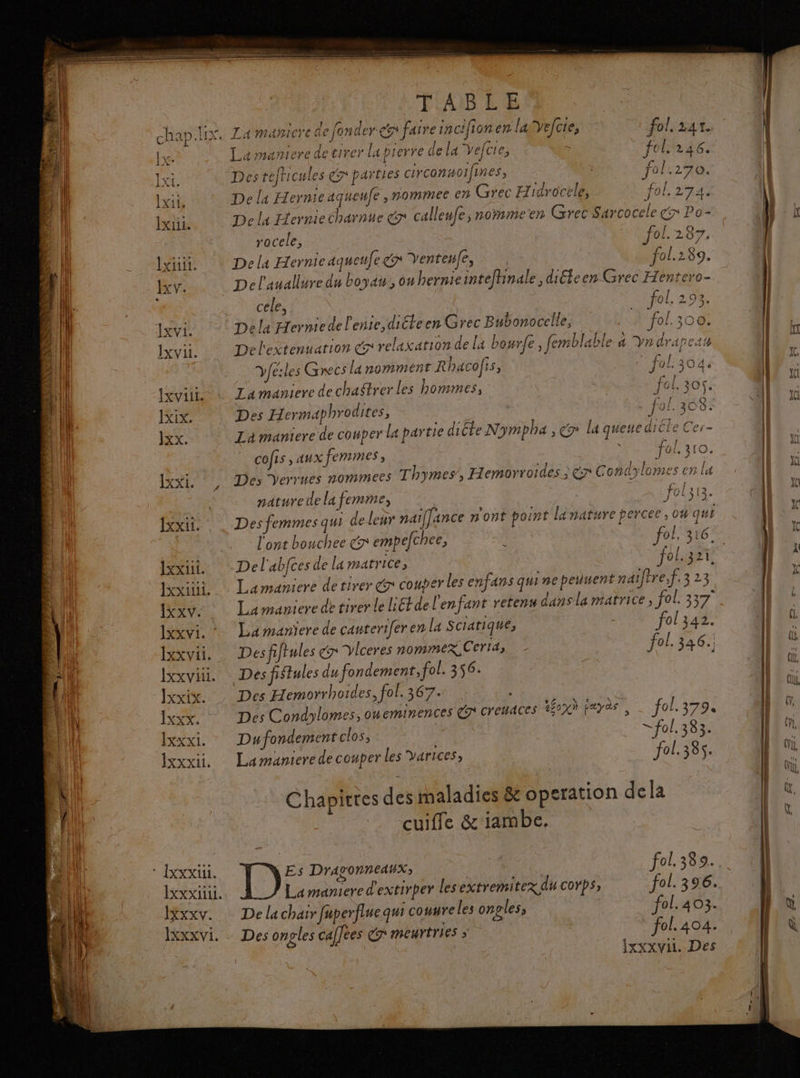 TABLE
chap.lix. La maniere de sonder & faire incision en la vescie, fol. 241.
lx. La maniere de tirer la pierre de la vescie, fol. 246.
lxi. Des testicules & parties circonuoisines, fol. 270.
lxii. De la Hernie aqueuse, nommee en Grec Hidrocele, fol. 274.
lxiii. De la Hernie charnue & calleuse, nommee en Grec Sarcocele & Po-
rocele, fol. 287.
lxiiii. De la Hernie aqueuse & venteuse, fol. 289.
lxv. De l'auallure du boyau, ou hernie intestinale, dicte en Grec Hentero-
cele, fol. 293.
lxvi. De la Hernie de l'enie, dicte en Grec Bubonocelle, fol. 300.
lxvii. De l'extenuation & relaxation de la bourse, semblable à vn drapeau
vsé: les Grecs la nomment Rhacosis, fol. 304.
lxviii. La maniere de chastrer les hommes, fol. 305.
lxix. Des Hermaphrodites, fol. 308.
lxx. La maniere de couper la partie dicte Nympha, & la queue dicte Cer-
cosis, aux femmes, fol. 310.
lxxi. Des verrues nommees Thymes, Hemorroides, & Condylomes en la
nature de la femme, fol 313.
lxxii. Des femmes qui de leur naissance n'ont point la nature percee, ou qui
l'ont bouchee & empeschee, fol. 316.
lxxiii. De l'absces de la matrice, fol. 321.
lxxiiii. La maniere de tirer & couper les enfans qui ne peuuent naistre, f. 323
lxxv. La maniere de tirer le lict de l'enfant retenu dans la matrice, fol. 337.
lxxvi. La maniere de cauteriser en la Sciatique, fol 342.
lxxvii. Des fistules & vlceres nommez Ceria, fol. 346.
lxxviii. Des fistules du fondement, fol. 356.
lxxix. Des Hemorrhoides, fol. 367.
lxxx. Des Condylomes, ou eminences & creuaces fol. 379.
lxxxi. Du fondement clos, fol. 383.
lxxxii. La maniere de couper les varices, fol. 385.
Chapitres des maladies & operation de la
cuisse & iambe.
lxxxiii. DEs Dragonneaux, fol. 389.
lxxxiiii. La maniere d'extirper les extremitez du corps, fol. 396.
lxxxv. De la chair superflue qui couure les ongles, fol. 403.
lxxxvi. Des ongles cassees & meurtries, fol. 404.
lxxxvii. Des